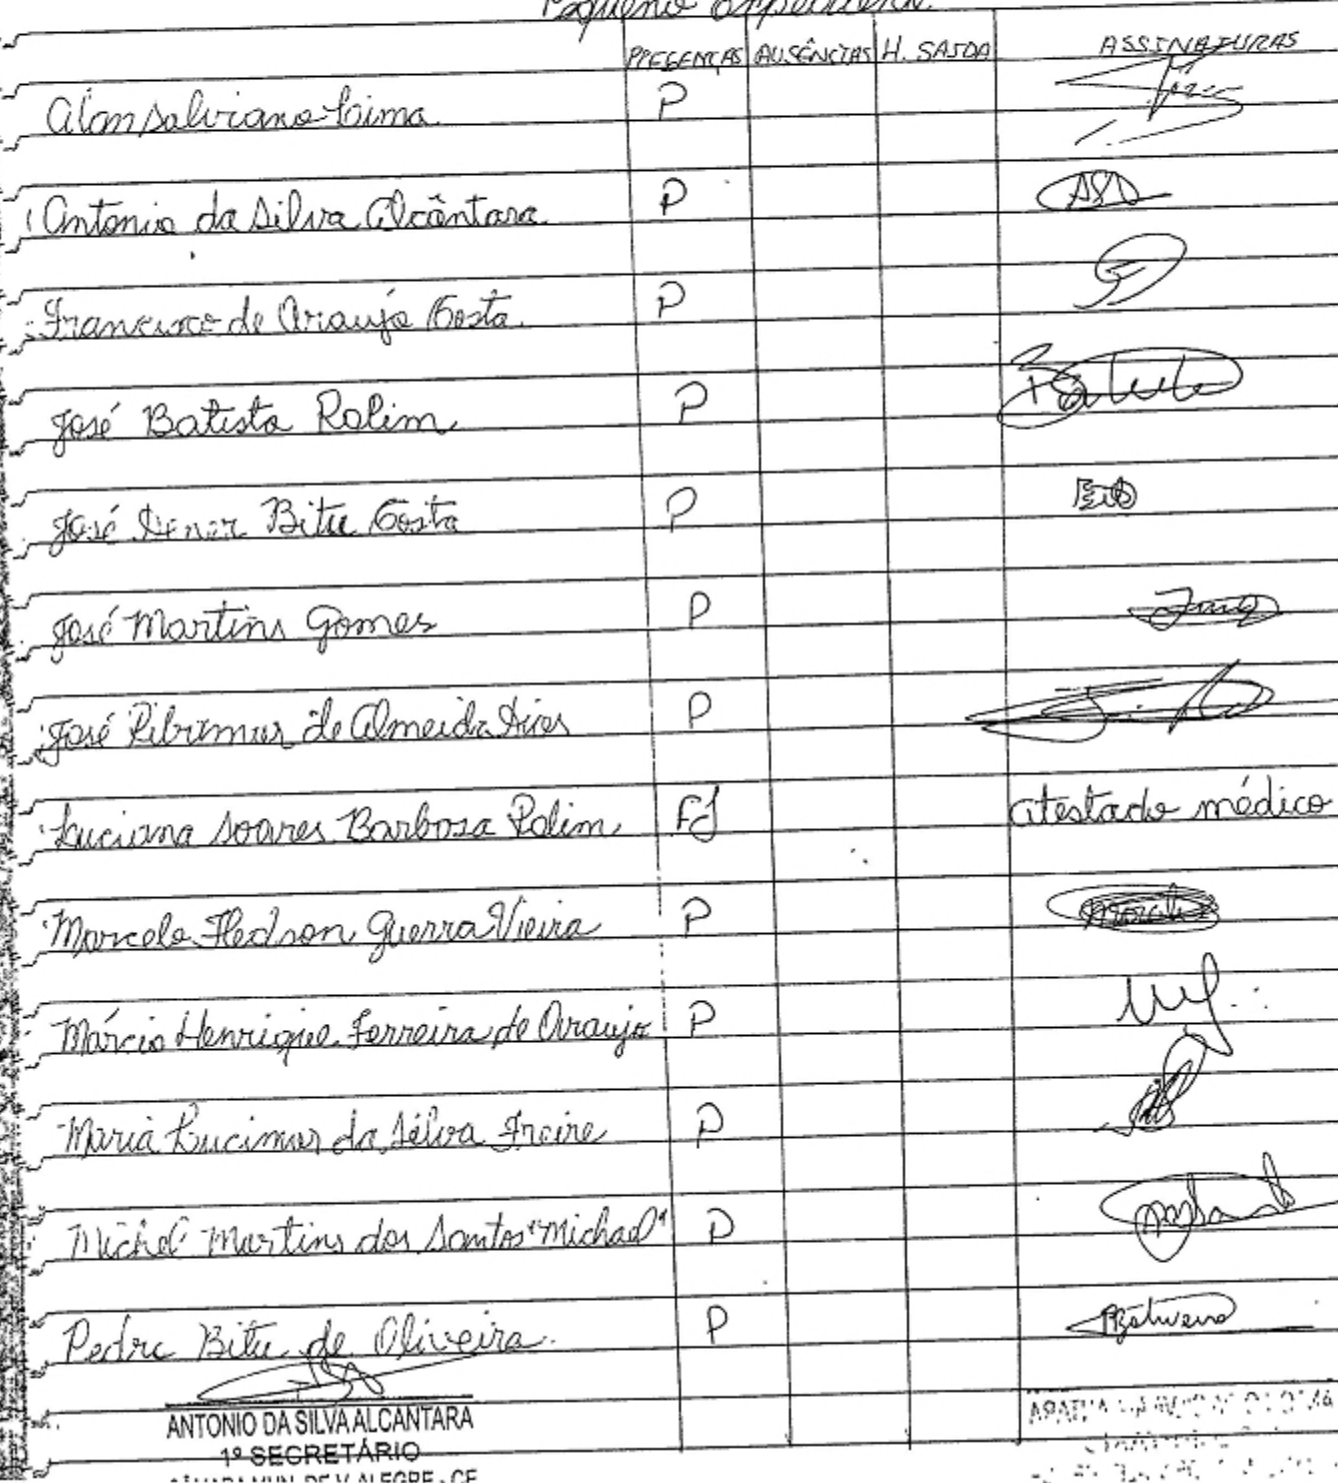 Pequeno Expediente
PRESENÇAS AUSÊNCIAS H. SAIDA ASSINATURAS
Alan Salviano Lima P
Antonio da Silva Alcântara P ASA
Francisco de Araujo Costa P
José Batista Rolim P Batista
José Bitu Costa P
José Martins Gomes P
José Ribamar de Almeida Aires P
Luciana Soares Barbosa Rolim FJ Atestado médico
Marcelo Fledson Guerra Vieira P
Márcio Henrique Ferreira de Araujo P
Maria Lucimar da Silva Freire P
Michel Martins dos Santos "Michael" P
Pedro Bitu de Oliveira P
ANTONIO DA SILVA ALCANTARA
1º SECRETÁRIO
CÂMARA MUN. DE V. ALEGRE - CE